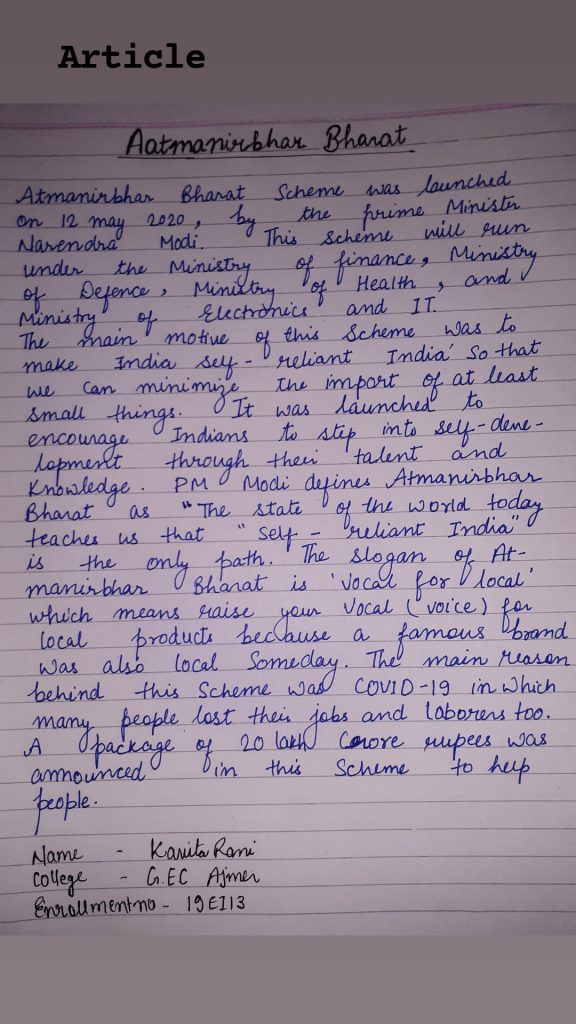 Article
Aatmanirbhar Bharat
Atmanirbhar Bharat Scheme was launched
on 12 may 2020, by the prime Minister
Narendra Modi. This Scheme will run
under the Ministry of finance, Ministry
of Defence, Ministry of Health, and
Ministry of Electronics and IT.
The main motive of this Scheme was to
make India self-reliant India' So that
we can minimize the import of at least
small things. It was launched to
encourage Indians to step into self-deve-
lopment through their talent and
Knowledge. PM Modi defines Atmanirbhar
Bharat as "The state of the world today
teaches us that "self-reliant India"
is the only path. The slogan of At-
manirbhar Bharat is 'vocal for local'
which means raise your Vocal (voice) for
local products because a famous brand
was also local Someday. The main reason
behind this Scheme was COVID-19 in which
many people lost their jobs and laborers too.
A package of 20 lakh Crore rupees was
announced in this Scheme to help
people.
Name - Kavita Rani
College - G.EC Ajmer
Enrollmentno - 19EI13